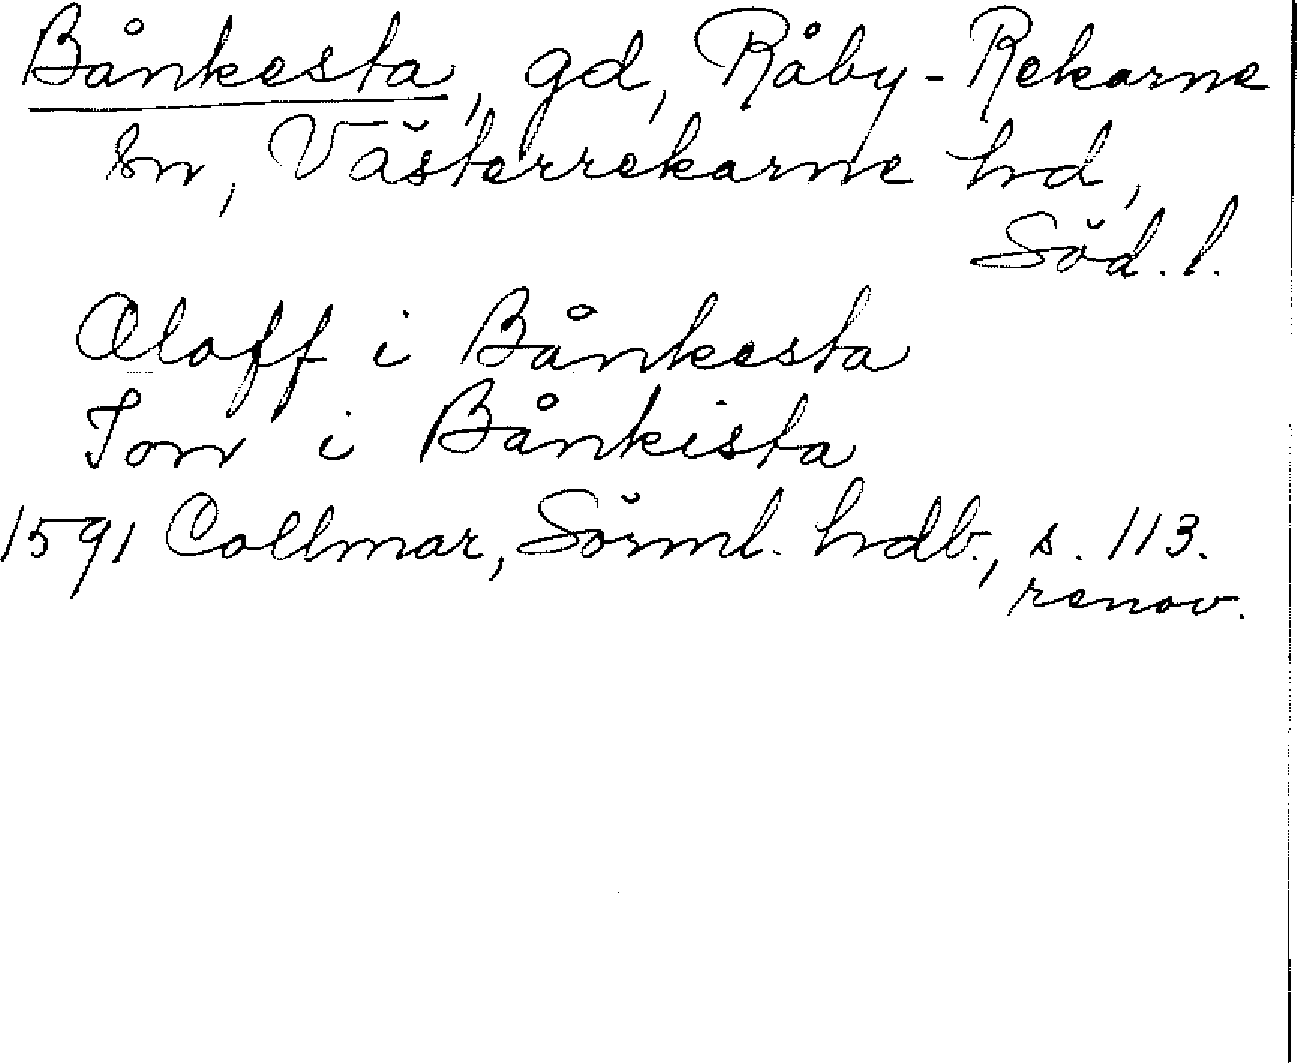 Bånkesta, gd, Råby-Rekarne
sn, Västerrekarne hd,
Söd. l.
Oloff i Bånkesta
Jon i Bånkista
1591 Collmar, Sörml. hdb., s. 113.
renov.